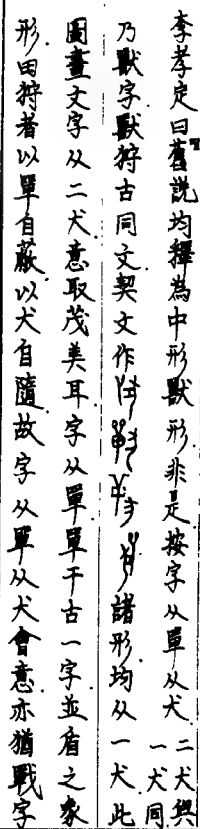 李孝定曰「舊說均釋為中形獸形非是按字从單从犬二犬與一犬同
乃獸字獸狩古同文契文作諸形均从一犬此
圖畫文字从二犬意取茂美耳字从單單干古一字並盾之象
形田狩者以單自蔽以犬自隨故字从單从犬會意亦猶戰字